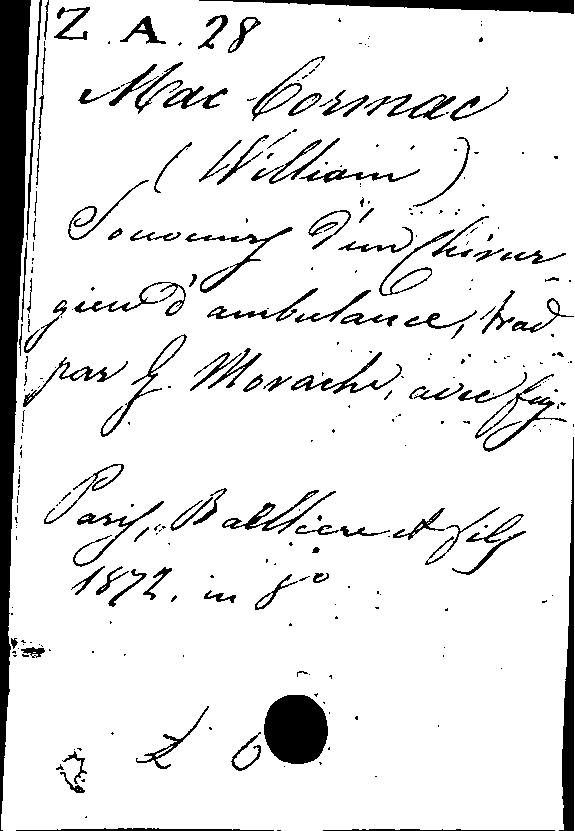 Z. A. 28
Mac Cormac
(William)
Souvenirs d'un Chirur-
gien d'ambulance, trad.
par G. Morache, avec fig.
Paris, Baillière et fils
1872. in 8°